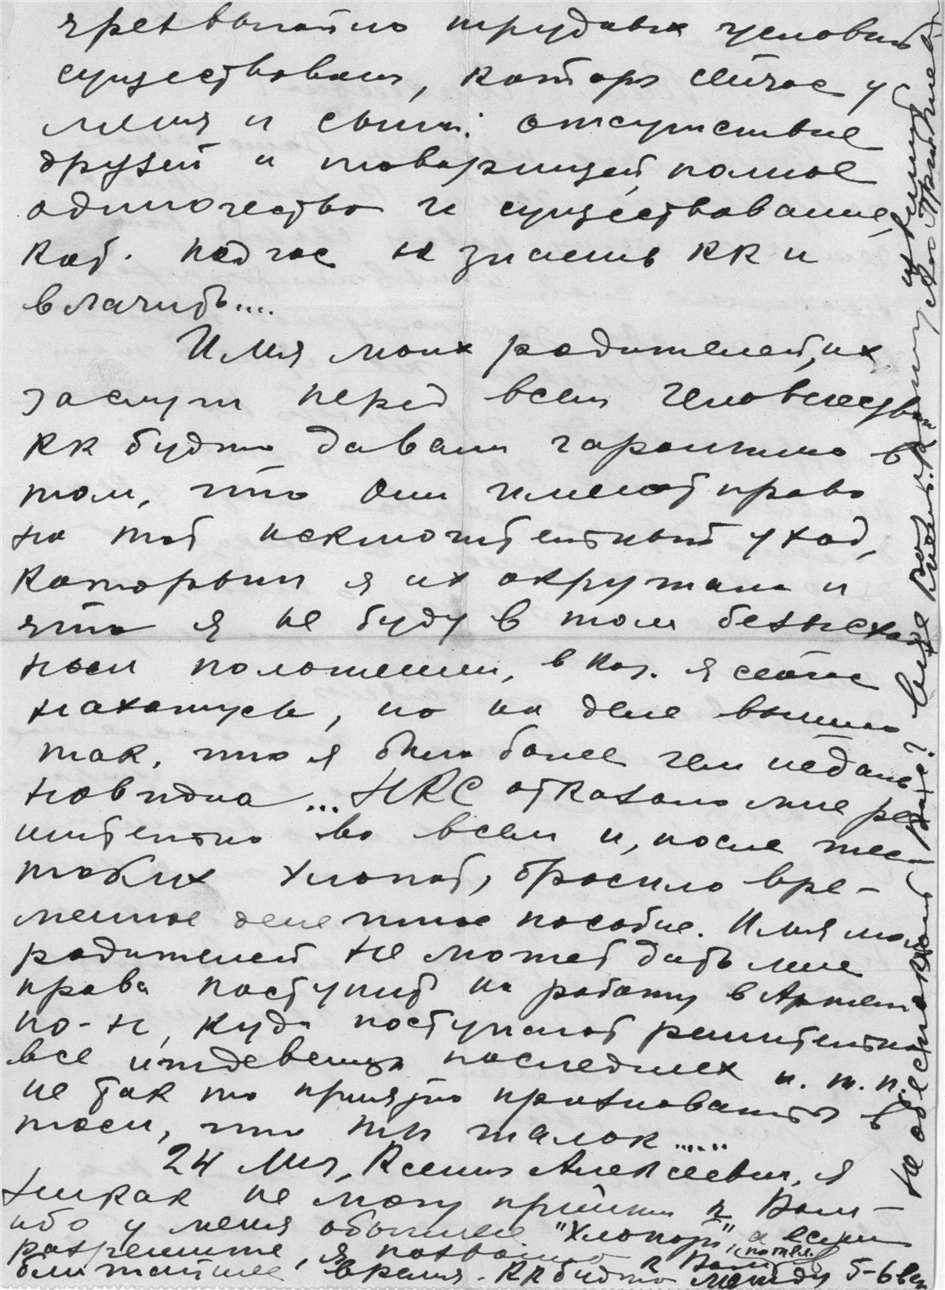 чрезвычайно трудных условий
существования, которые сейчас у
меня и самый: отсутствие
друзей и товарищей, полное
одиночество и существование,
кот. подчас не знаешь кк и
влачить...
Имя моих родителей, их
заслуги перед всем человечеством
кк будто давали гарантию в
том, что они имеют право
на тот исключительный уход,
которым я их окружала и
что я не буду в том безысход
ном положении, в кот. я сейчас
нахожусь, но на деле вышло
так, что я была более чем недаль
новидна... НКС отказало мне ре
шительно во всем и, после
таких хлопот, бросило вре-
менное денежное пособие. Имя моих
родителей не может дать мне
права поступить на работу в
куда поступают решительно
все иждевенцы последних и. т. п.
не так то приятно признаваться в
том, что ты жалок......
24 Мая, Ксения Алексеевна, я
никак не могу прийти к Вам-
ибо у меня обычные "хлопоты", а если
разрешите, я позвоню к Вам
ближайшее время. кк будто между 5-6 веч